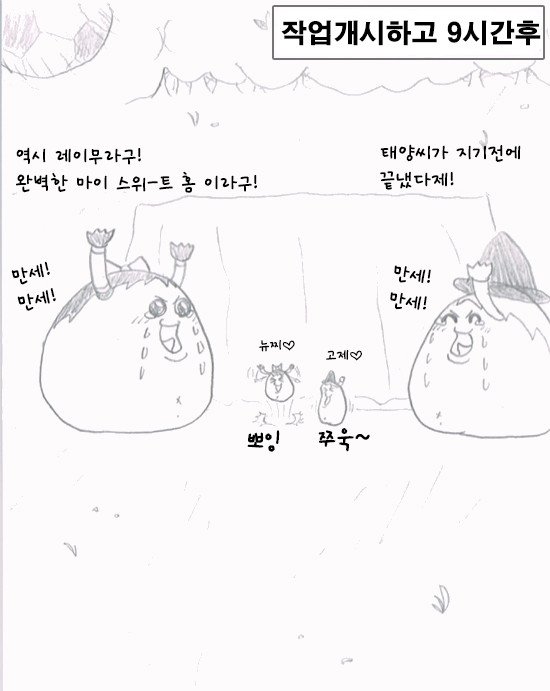 작업개시하고 9시간후
역시 레이무라구!
완벽한 마이 스위-트 홈 이라구!
태양씨가 지기전에
끝냈다제!
만세!
만세!
만세!
만세!
뉴찌♡
고제♡
뽀잉
쭈욱~